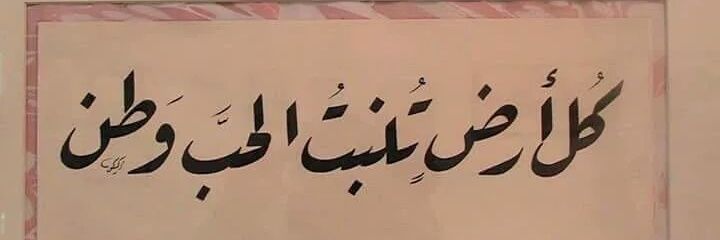 كُل أرضٍ تُنبتُ الحبَّ وَطن